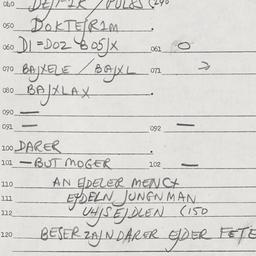 050 DOKTEJRIM .
060 DI=DOZ BOSJX 061 O
070 BAJXELE / BAJXL 071 >
080 BAJXLAX .
090 —
091 — 092 —
100 DARER .
101 — BUT MOGER 102 —
110 AN EJDELER MENCX
111 EJDELN JUNGNMAN
112 EJDLEN (150
120 BESER ZAJN DARER EJDER FETE